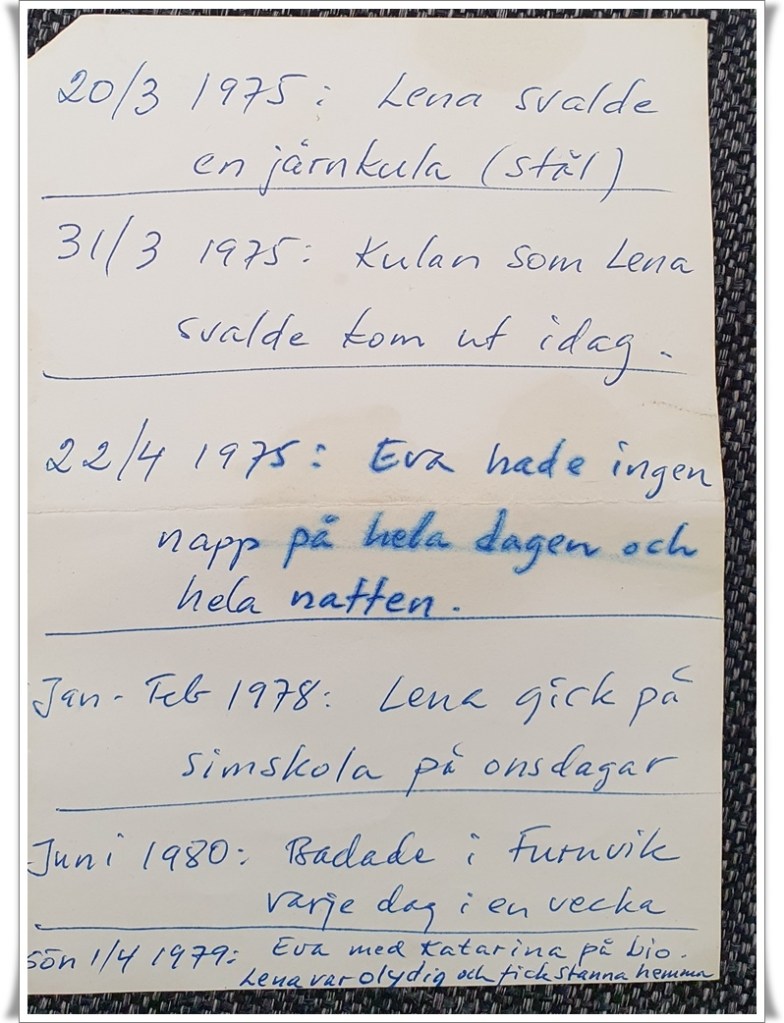 20/3 1975: Lena svalde
en järnkula (stål)
31/3 1975: Kulan som Lena
svalde kom ut idag.
22/4 1975: Eva hade ingen
napp på hela dagen och
hela natten.
Jan - Feb 1978: Lena gick på
simskola på onsdagar
Juni 1980: Badade i Furuvik
varje dag i en vecka
sön 1/4 1979: Eva med Katarina på bio.
Lena var olydig och fick stanna hemma